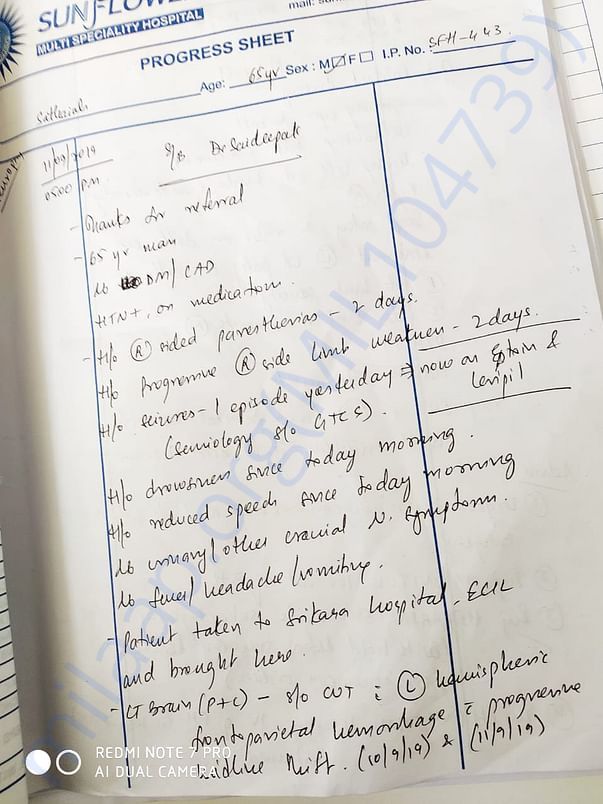 SUNFLOWER
MULTI SPECIALITY HOSPITAL
mail: sun
PROGRESS SHEET
Age: 65yr Sex : M F I.P. No. SFH-443.
11/09/2019
0500 pm
S/B Dr Saideepak
- Thanks for referral
- 65 yr man
No DM/ CAD
HTN+, on medication.
- H/o (R) sided paresthesias - 2 days.
H/o Progressive (R) side limb weakness - 2 days.
H/o seizures - 1 episode yesterday ⇒ now on Eptoin &
Levipil
(semiology s/o GTCS).
H/o drowsiness since today morning.
H/o reduced speech since today morning
No urinary/ other cranial N. symptoms.
No fever/ headache/ vomiting.
- Patient taken to Srikara hospital, ECIL
and brought here.
- CT Brain (P+C) - s/o CVT c̄ (L) hemispheric
frontoparietal hemorrhage c̄ progressive
midline shift. (10/9/19) & (11/9/19)
milaap.org(MIL104739)
REDMI NOTE 7 PRO
AI DUAL CAMERA